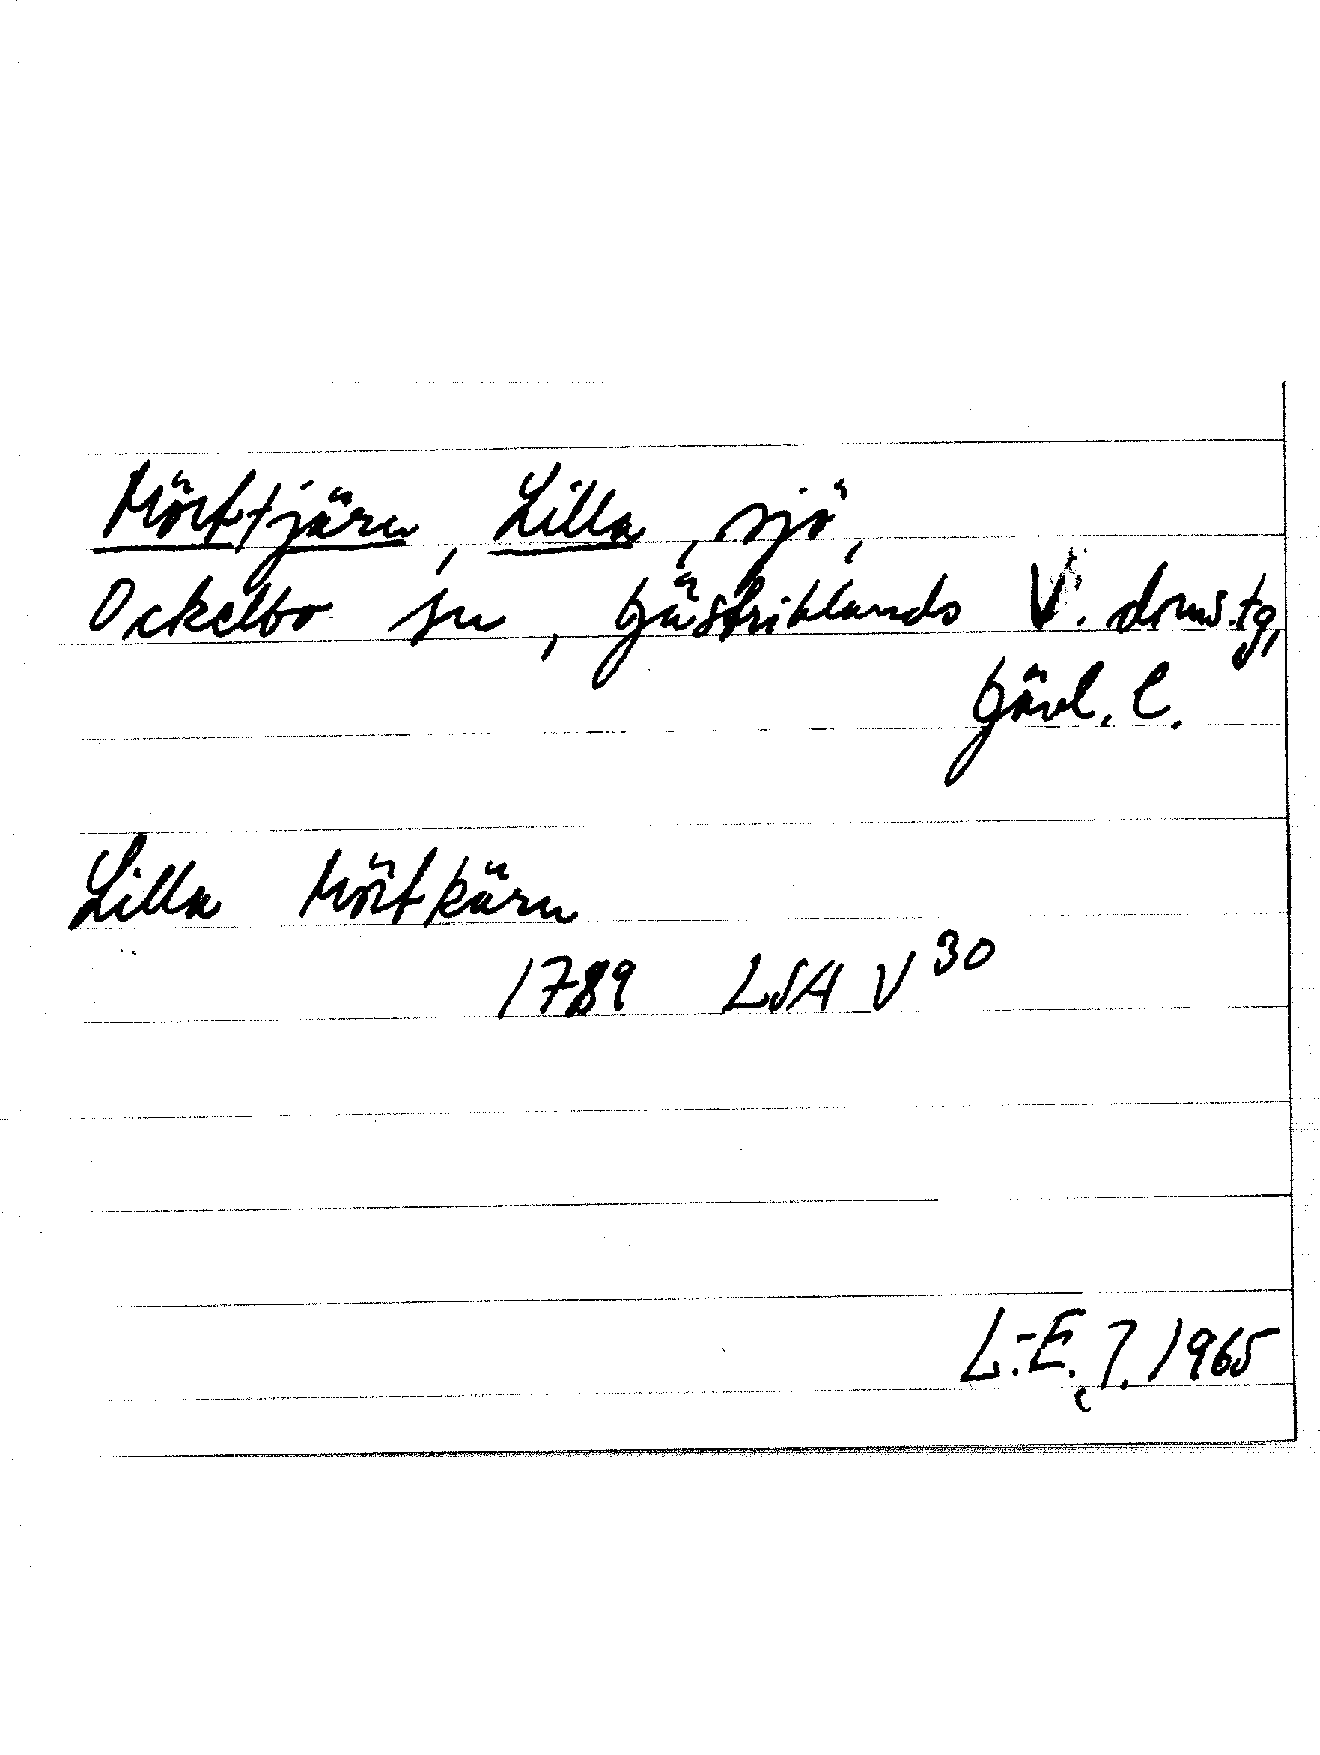 Mörttjärn, Lilla, sjö,
Ockelbo sn, Gästriklands V. doms.tg,
Gävl. l.
Lilla Mörtkärn
1789 LSA V 30
L.-E. 7. 1965